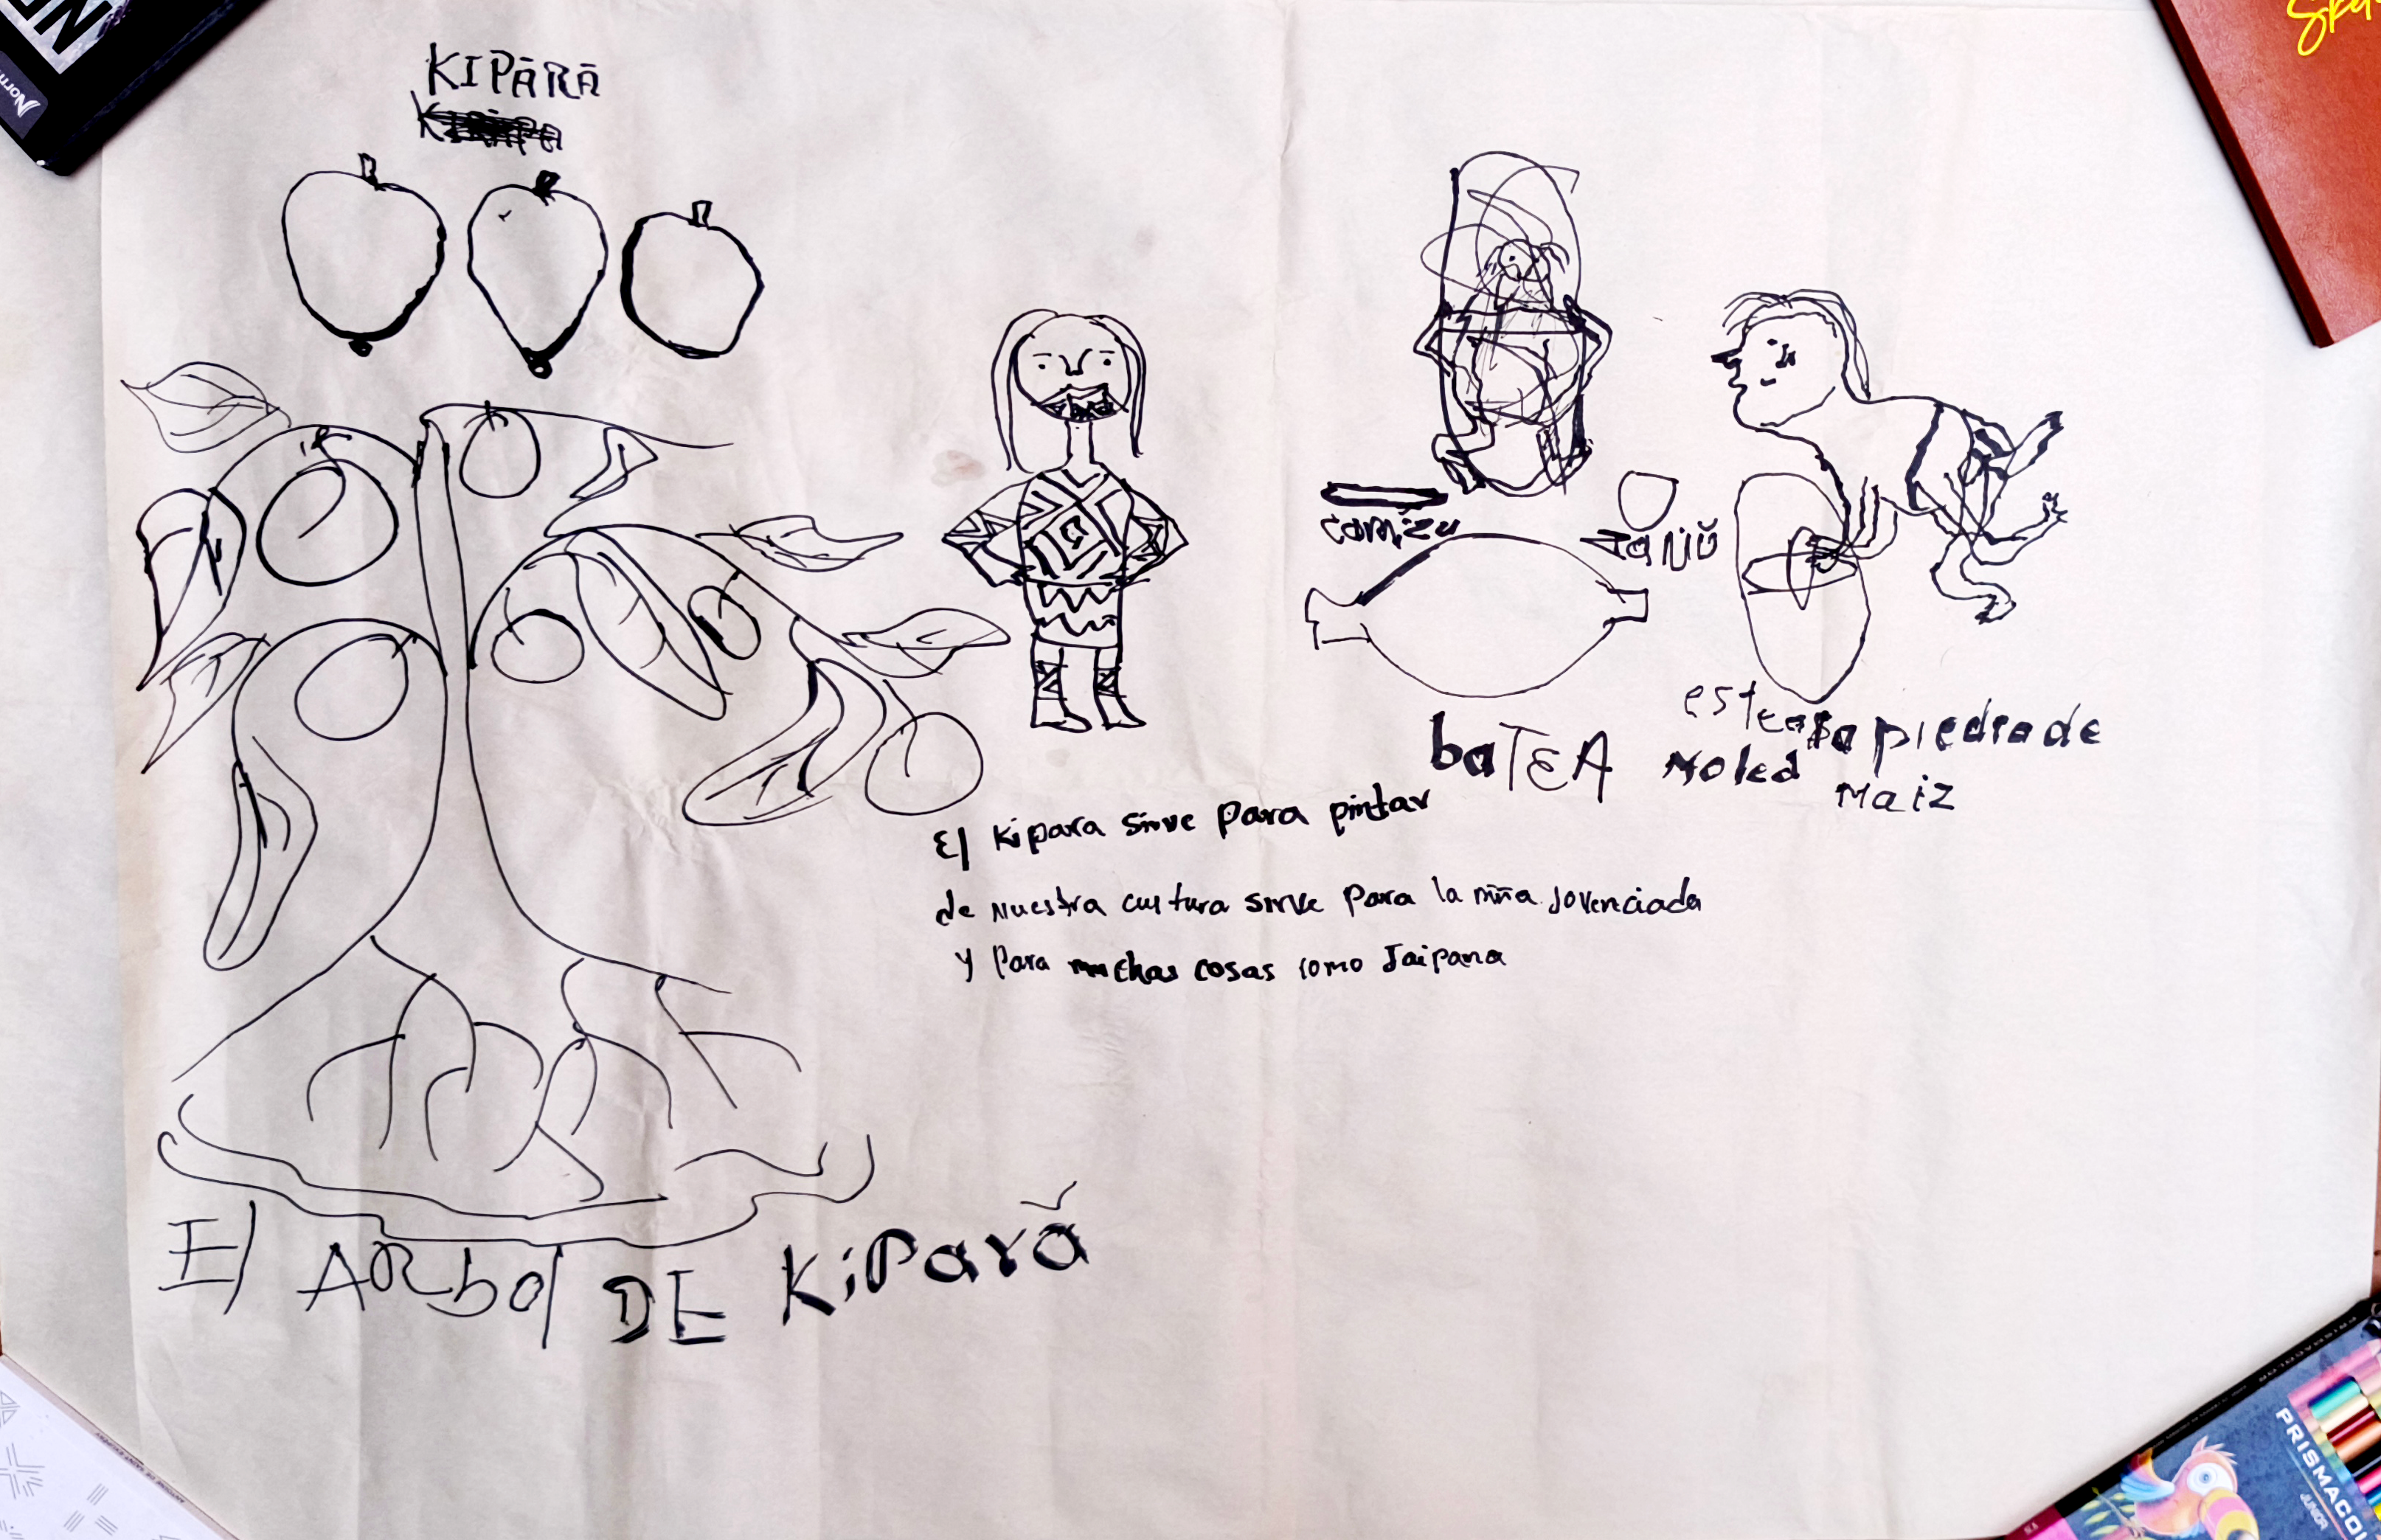 KIPĀRĀ
comízu
JaNiŭ
baTEA
este es la piedra de
Moled
Maiz
El Kipara sirve para pintar
de Nuestra cultura sirve Para la niña Jovenciada
y Para muchas cosas como Jaipana
El ARbol DE KiPará̃
PRISMACOLOR
JUNIOR
Norma